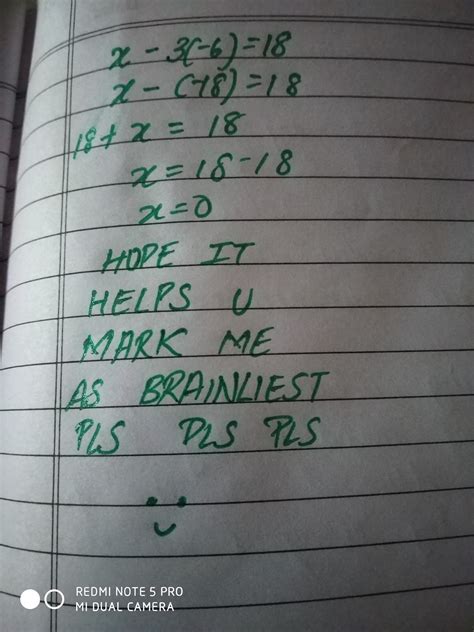 x - 3(-6) = 18
x - (-18) = 18
18 + x = 18
x = 18 - 18
x = 0
HOPE IT
HELPS U
MARK ME
AS BRAINLIEST
PLS PLS PLS
REDMI NOTE 5 PRO
MI DUAL CAMERA